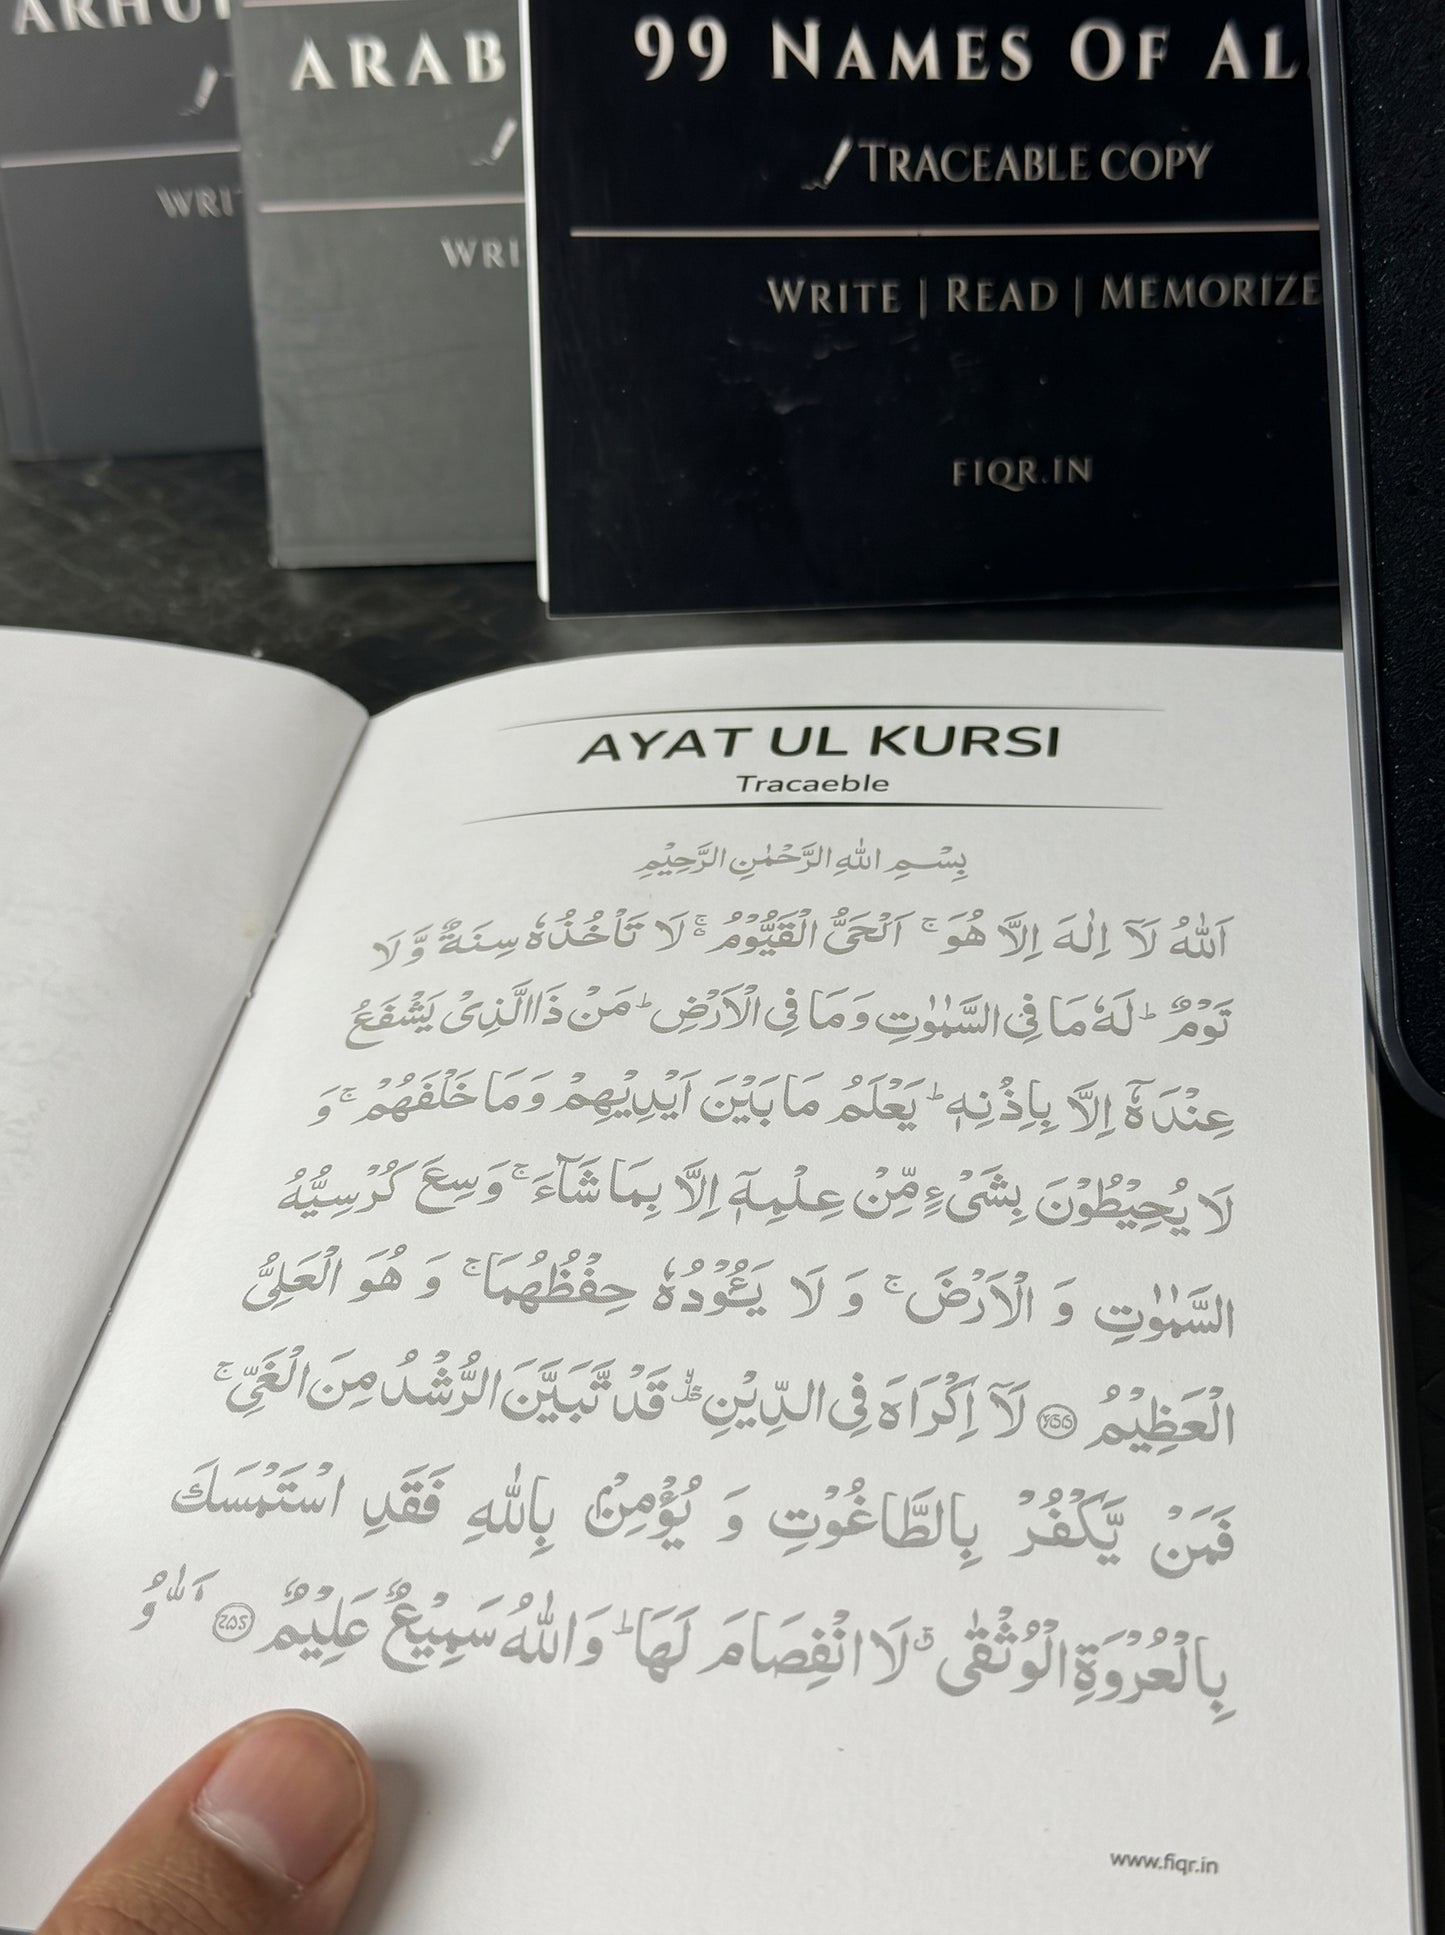 ARAB
WRI
WRI
99 NAMES OF AL
TRACEABLE COPY
WRITE | READ | MEMORIZE
FIQR.IN
AYAT UL KURSI
Tracaeble
بِسْــمِ اللهِ الرَّحْمٰنِ الرَّحِيْمِ
اَللّٰهُ لَآ اِلٰهَ اِلَّا هُوَ ۚ اَلْحَىُّ الْقَيُّوْمُ ۚ لَا تَاْخُذُهٗ سِنَةٌ وَّ لَا
نَوْمٌ ؕ لَهٗ مَا فِى السَّمٰوٰتِ وَ مَا فِى الْاَرْضِ ؕ مَنْ ذَا الَّذِىْ يَشْفَعُ
عِنْدَهٗۤ اِلَّا بِاِذْنِهٖ ؕ يَعْلَمُ مَا بَيْنَ اَيْدِيْهِمْ وَ مَا خَلْفَهُمْ ۚ وَ
لَا يُحِيْطُوْنَ بِشَىْءٍ مِّنْ عِلْمِهٖۤ اِلَّا بِمَا شَآءَ ۚ وَسِعَ كُرْسِيُّهُ
السَّمٰوٰتِ وَ الْاَرْضَ ۚ وَ لَا يَـُٔوْدُهٗ حِفْظُهُمَا ۚ وَ هُوَ الْعَلِىُّ
الْعَظِيْمُ ﴿۲۵۵﴾ لَآ اِكْرَاهَ فِى الدِّيْنِ ۙ قَدْ تَّبَيَّنَ الرُّشْدُ مِنَ الْغَىِّ ۚ
فَمَنْ يَّكْفُرْ بِالطَّاغُوْتِ وَ يُؤْمِنْۢ بِاللّٰهِ فَقَدِ اسْتَمْسَكَ
بِالْعُرْوَةِ الْوُثْقٰى ۗ لَا انْفِصَامَ لَهَا ؕ وَ اللّٰهُ سَمِيْعٌ عَلِيْمٌ ﴿۲۵۶﴾
www.fiqr.in